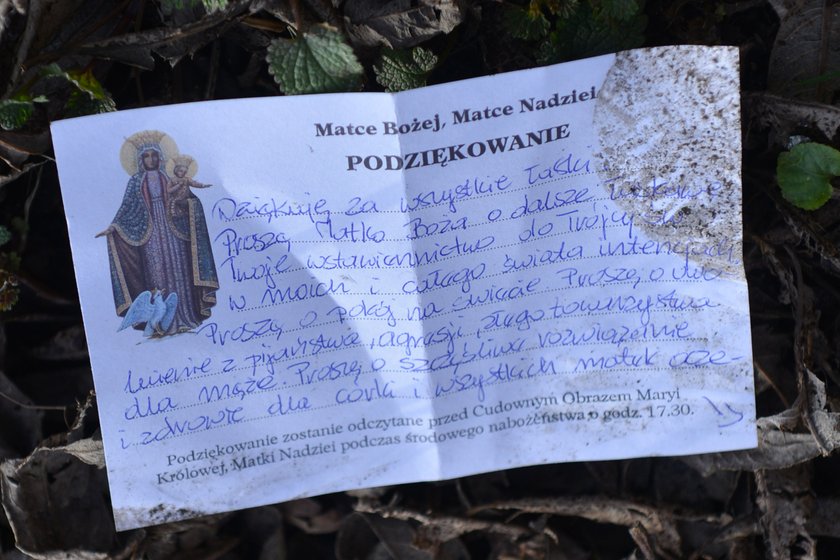 Matce Bożej, Matce Nadziei
PODZIĘKOWANIE
Dziękuję za wszystkie łaski
Proszę Matko Boża o dalsze łaskawe
Twoje wstawiennictwo do Trójcy Św.
w moich i całego świata intencjach
Proszę o pokój na świecie Proszę o uwo-
lnienie z pijaństwa, agresji złego towarzystwa
dla męża. Proszę o szczęśliwe rozwiązanie
i zdrowie dla córki i wszystkich matek ocze-
Podziękowanie zostanie odczytane przed Cudownym Obrazem Maryi
Królowej, Matki Nadziei podczas środowego nabożeństwa o godz. 17.30.